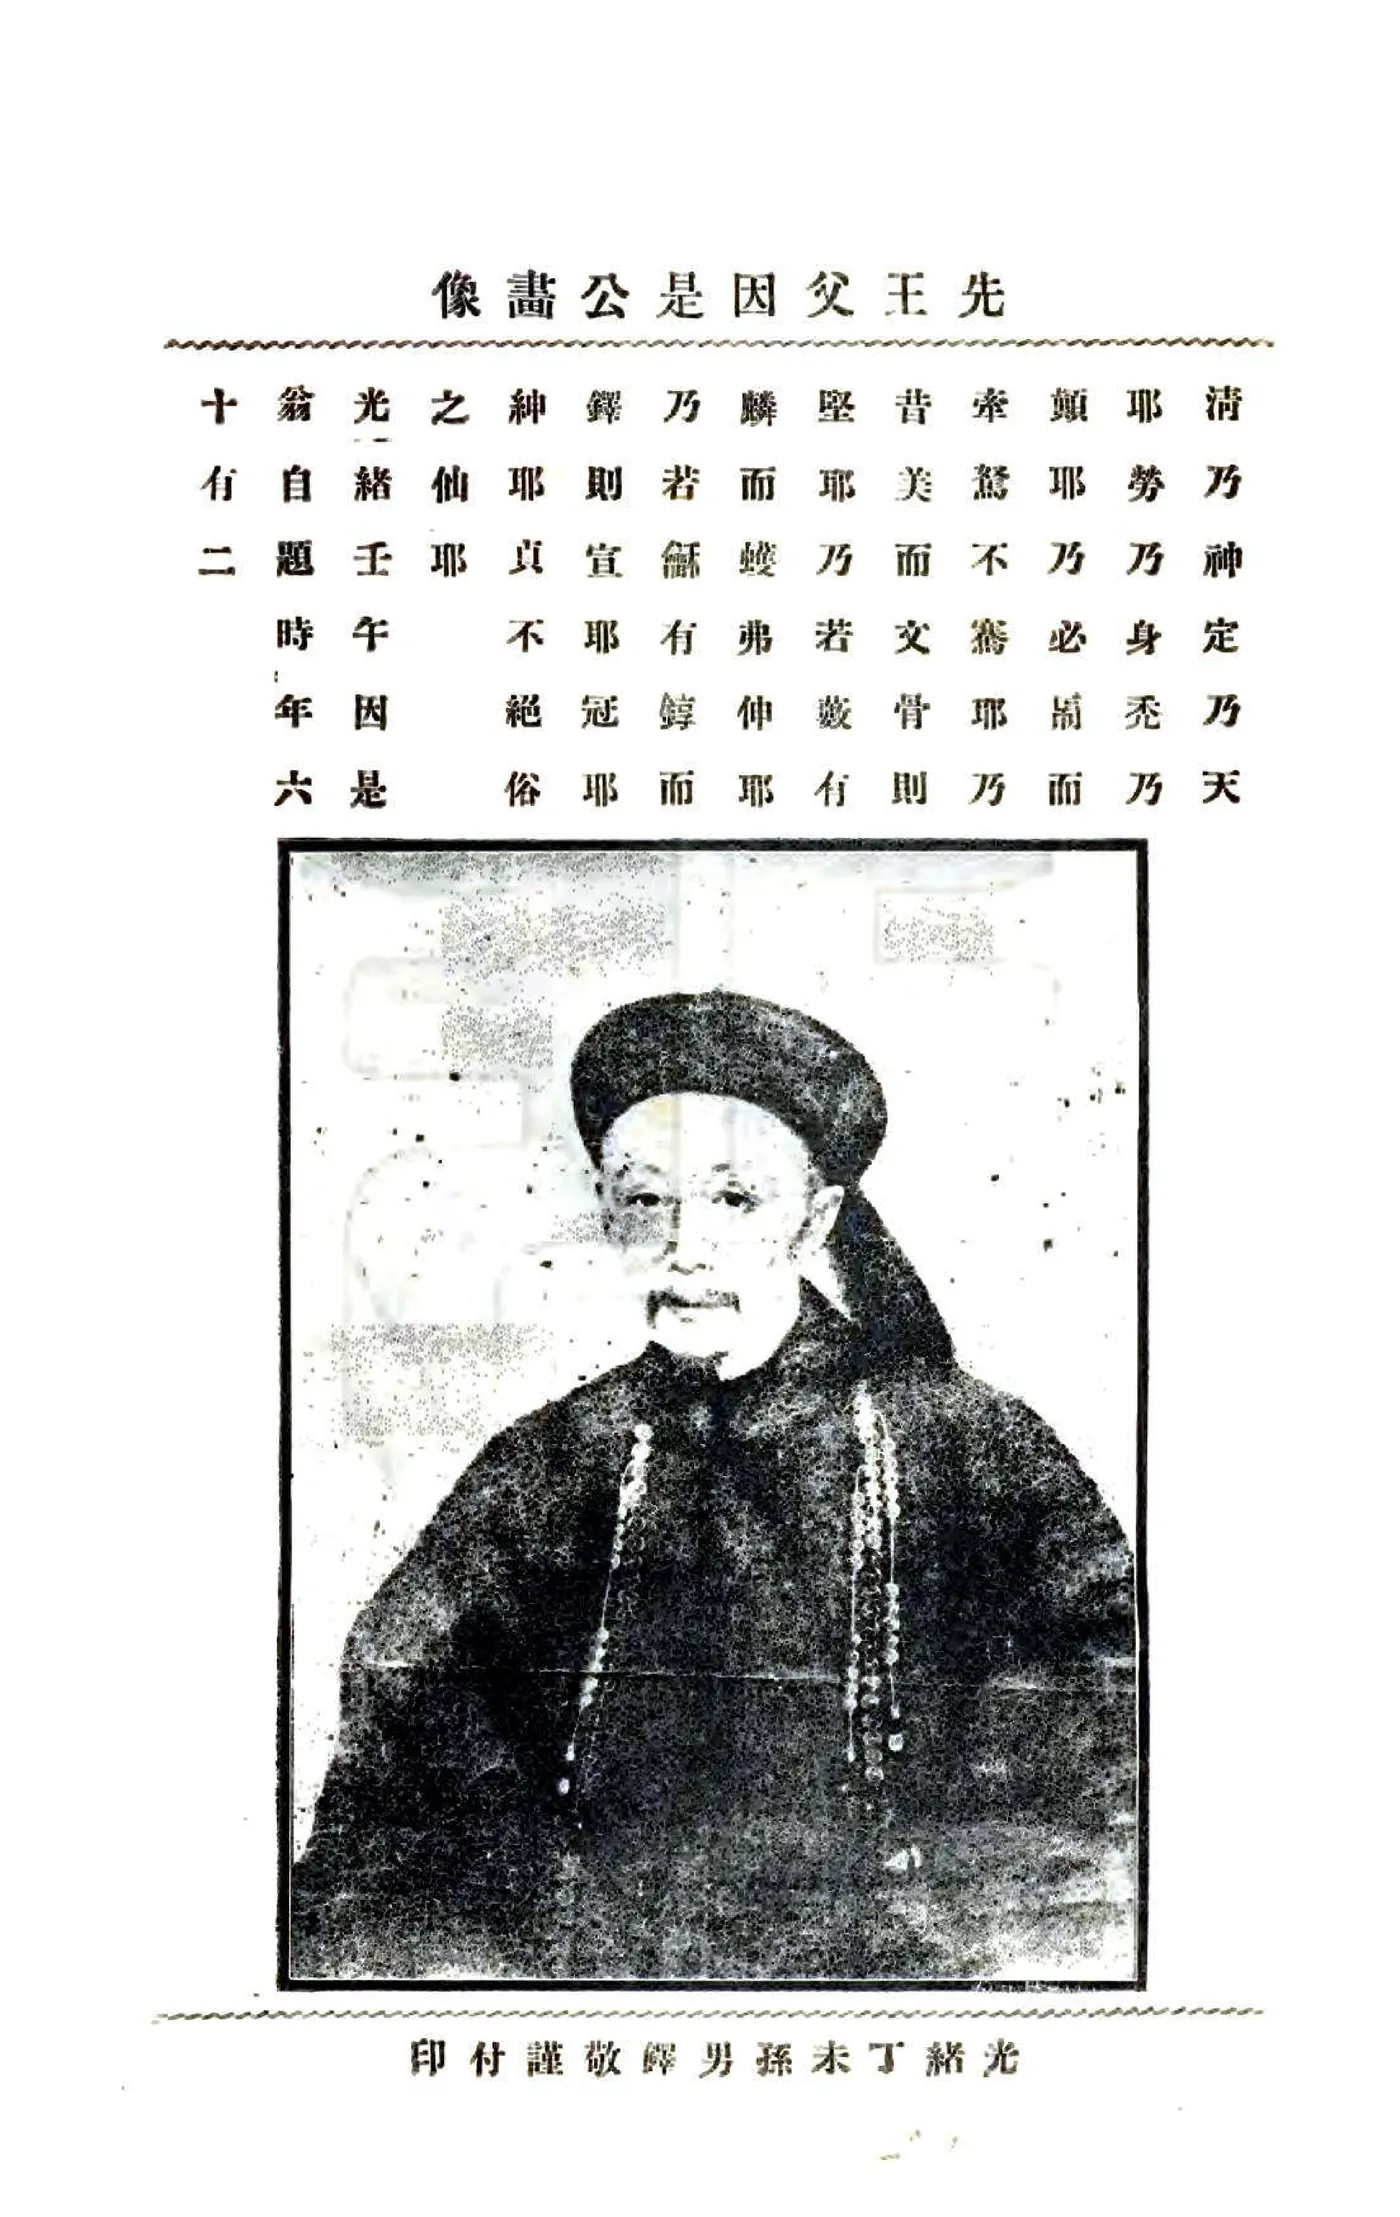 先王父因是公畵像
清乃神定乃天
耶勞乃身禿乃
顛耶乃必而
牽鴑不騫耶乃
昔美而文骨則
堅耶乃若薮有
麟而蠖弗伸耶
乃若龢有錞而
鐸則宣耶冠耶
紳耶貞不絕俗
之仙耶
光緒壬午因是
翁自題時年六
十有二
光緒丁未孫男鐸敬謹付印